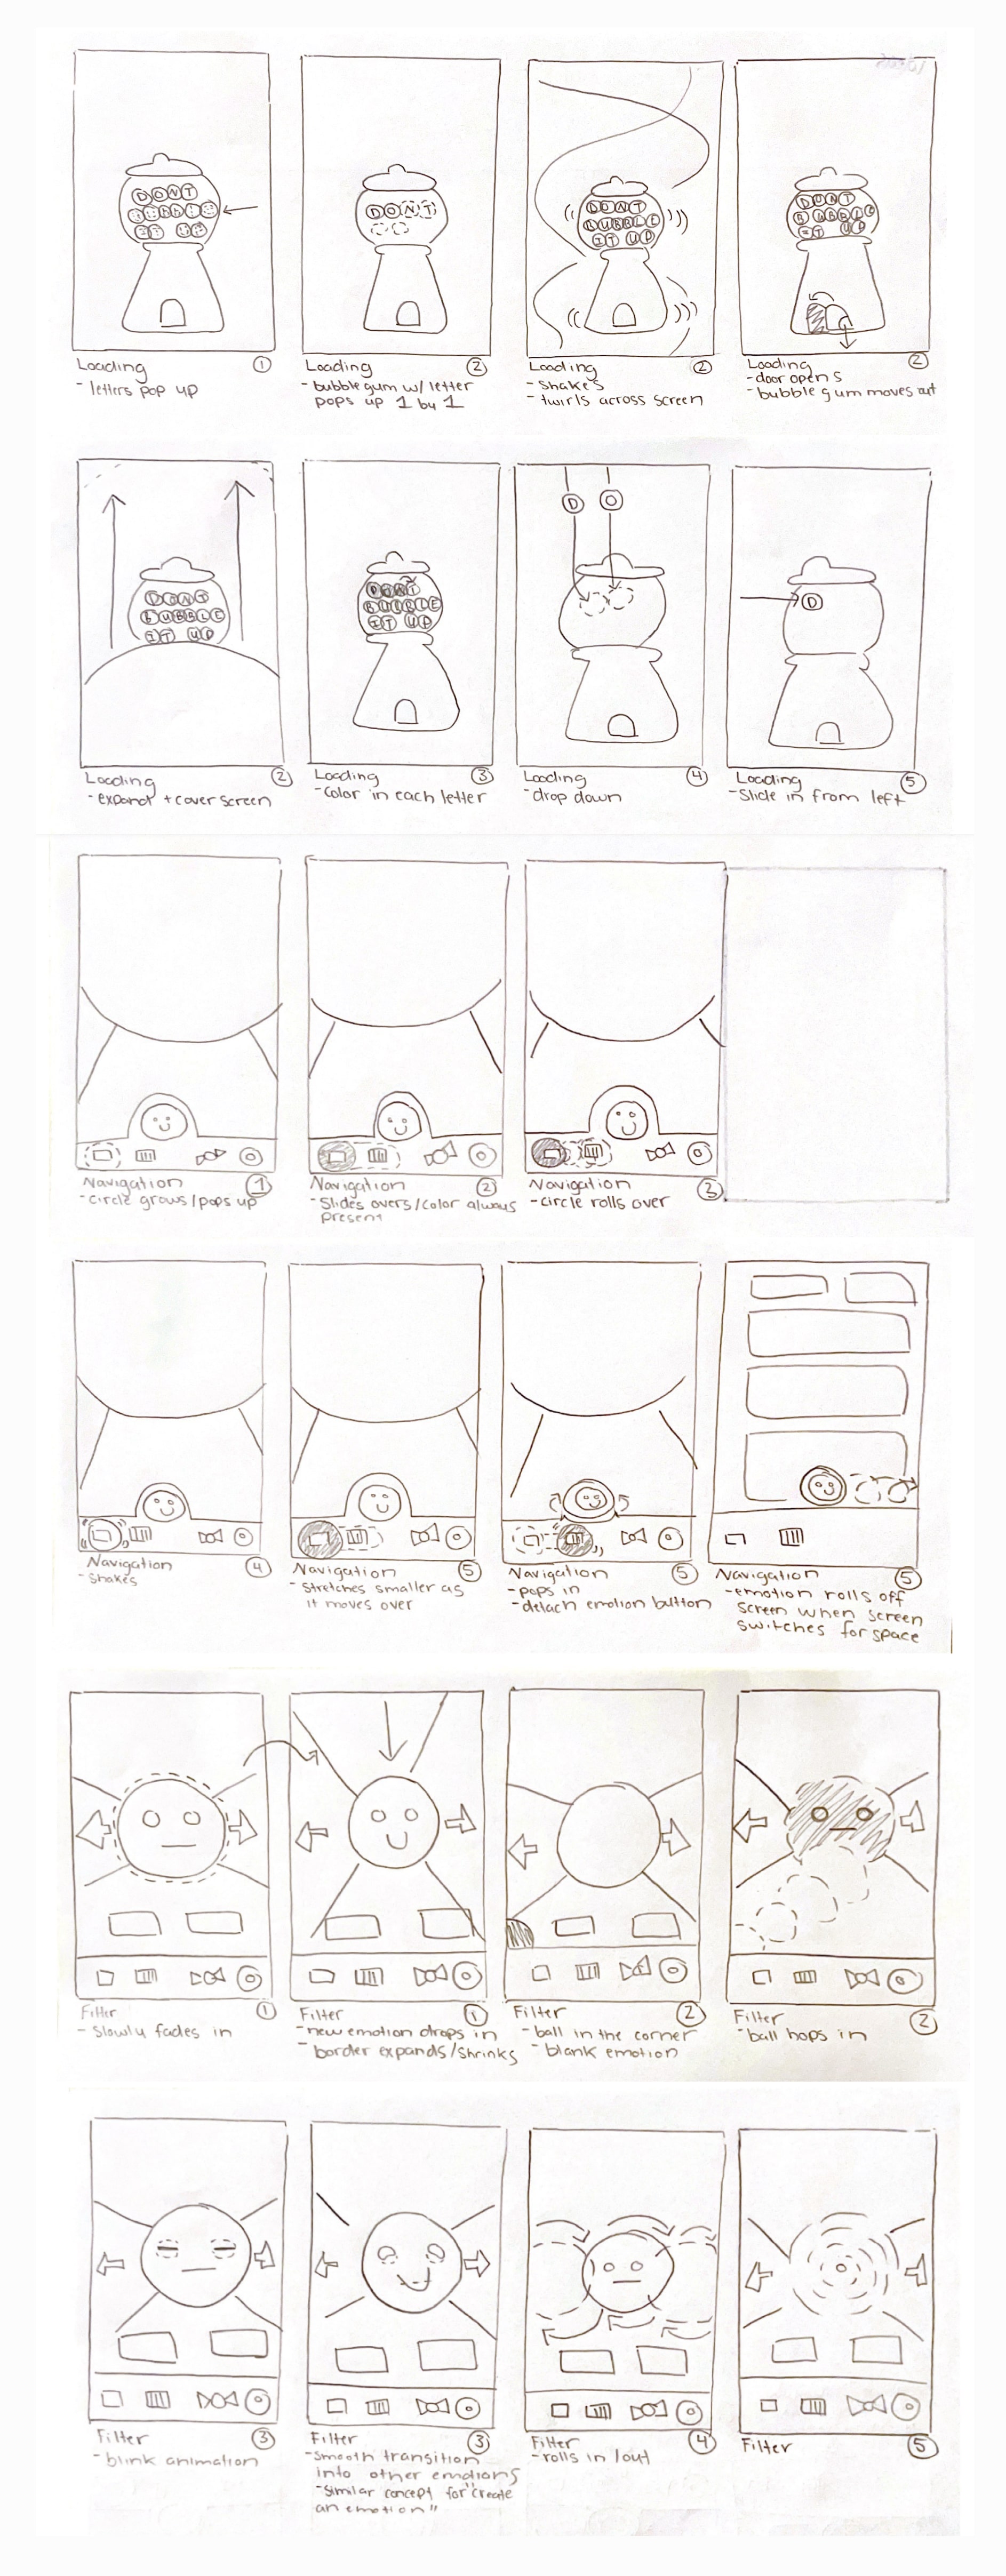 DONT
Loading ①
- letters pop up
DONT
Loading ②
- bubblegum w/ letter
pops up 1 by 1
DONT
BUBBLE
IT UP
Loading ②
- Shakes
- twirls across screen
DONT
BUBBLE
IT UP
Loading ②
- door opens
- bubble gum moves out
DONT
BUBBLE
IT UP
Loading ②
- expand + cover screen
DONT
BUBBLE
IT UP
Loading ③
- Color in each letter
D O
Loading ④
- drop down
D
Loading ⑤
- Slide in from left
Navigation ①
- circle grows/pops up
Navigation ②
- Slides overs/color always
present
Navigation ③
- circle rolls over
Navigation ④
- Shakes
Navigation ⑤
- Stretches smaller as
it moves over
Navigation ⑤
- pops in
- detach emotion button
Navigation ⑤
- emotion rolls off
screen when screen
switches for space
Filter ①
- Slowly fades in
Filter ①
- new emotion drops in
- border expands/shrinks
Filter ②
- ball in the corner
- blank emotion
Filter ②
- ball hops in
Filter ③
- blink animation
Filter ③
- Smooth transition
into other emotions
- Similar concept for "create
an emotion"
Filter ④
- rolls in/out
Filter ⑤